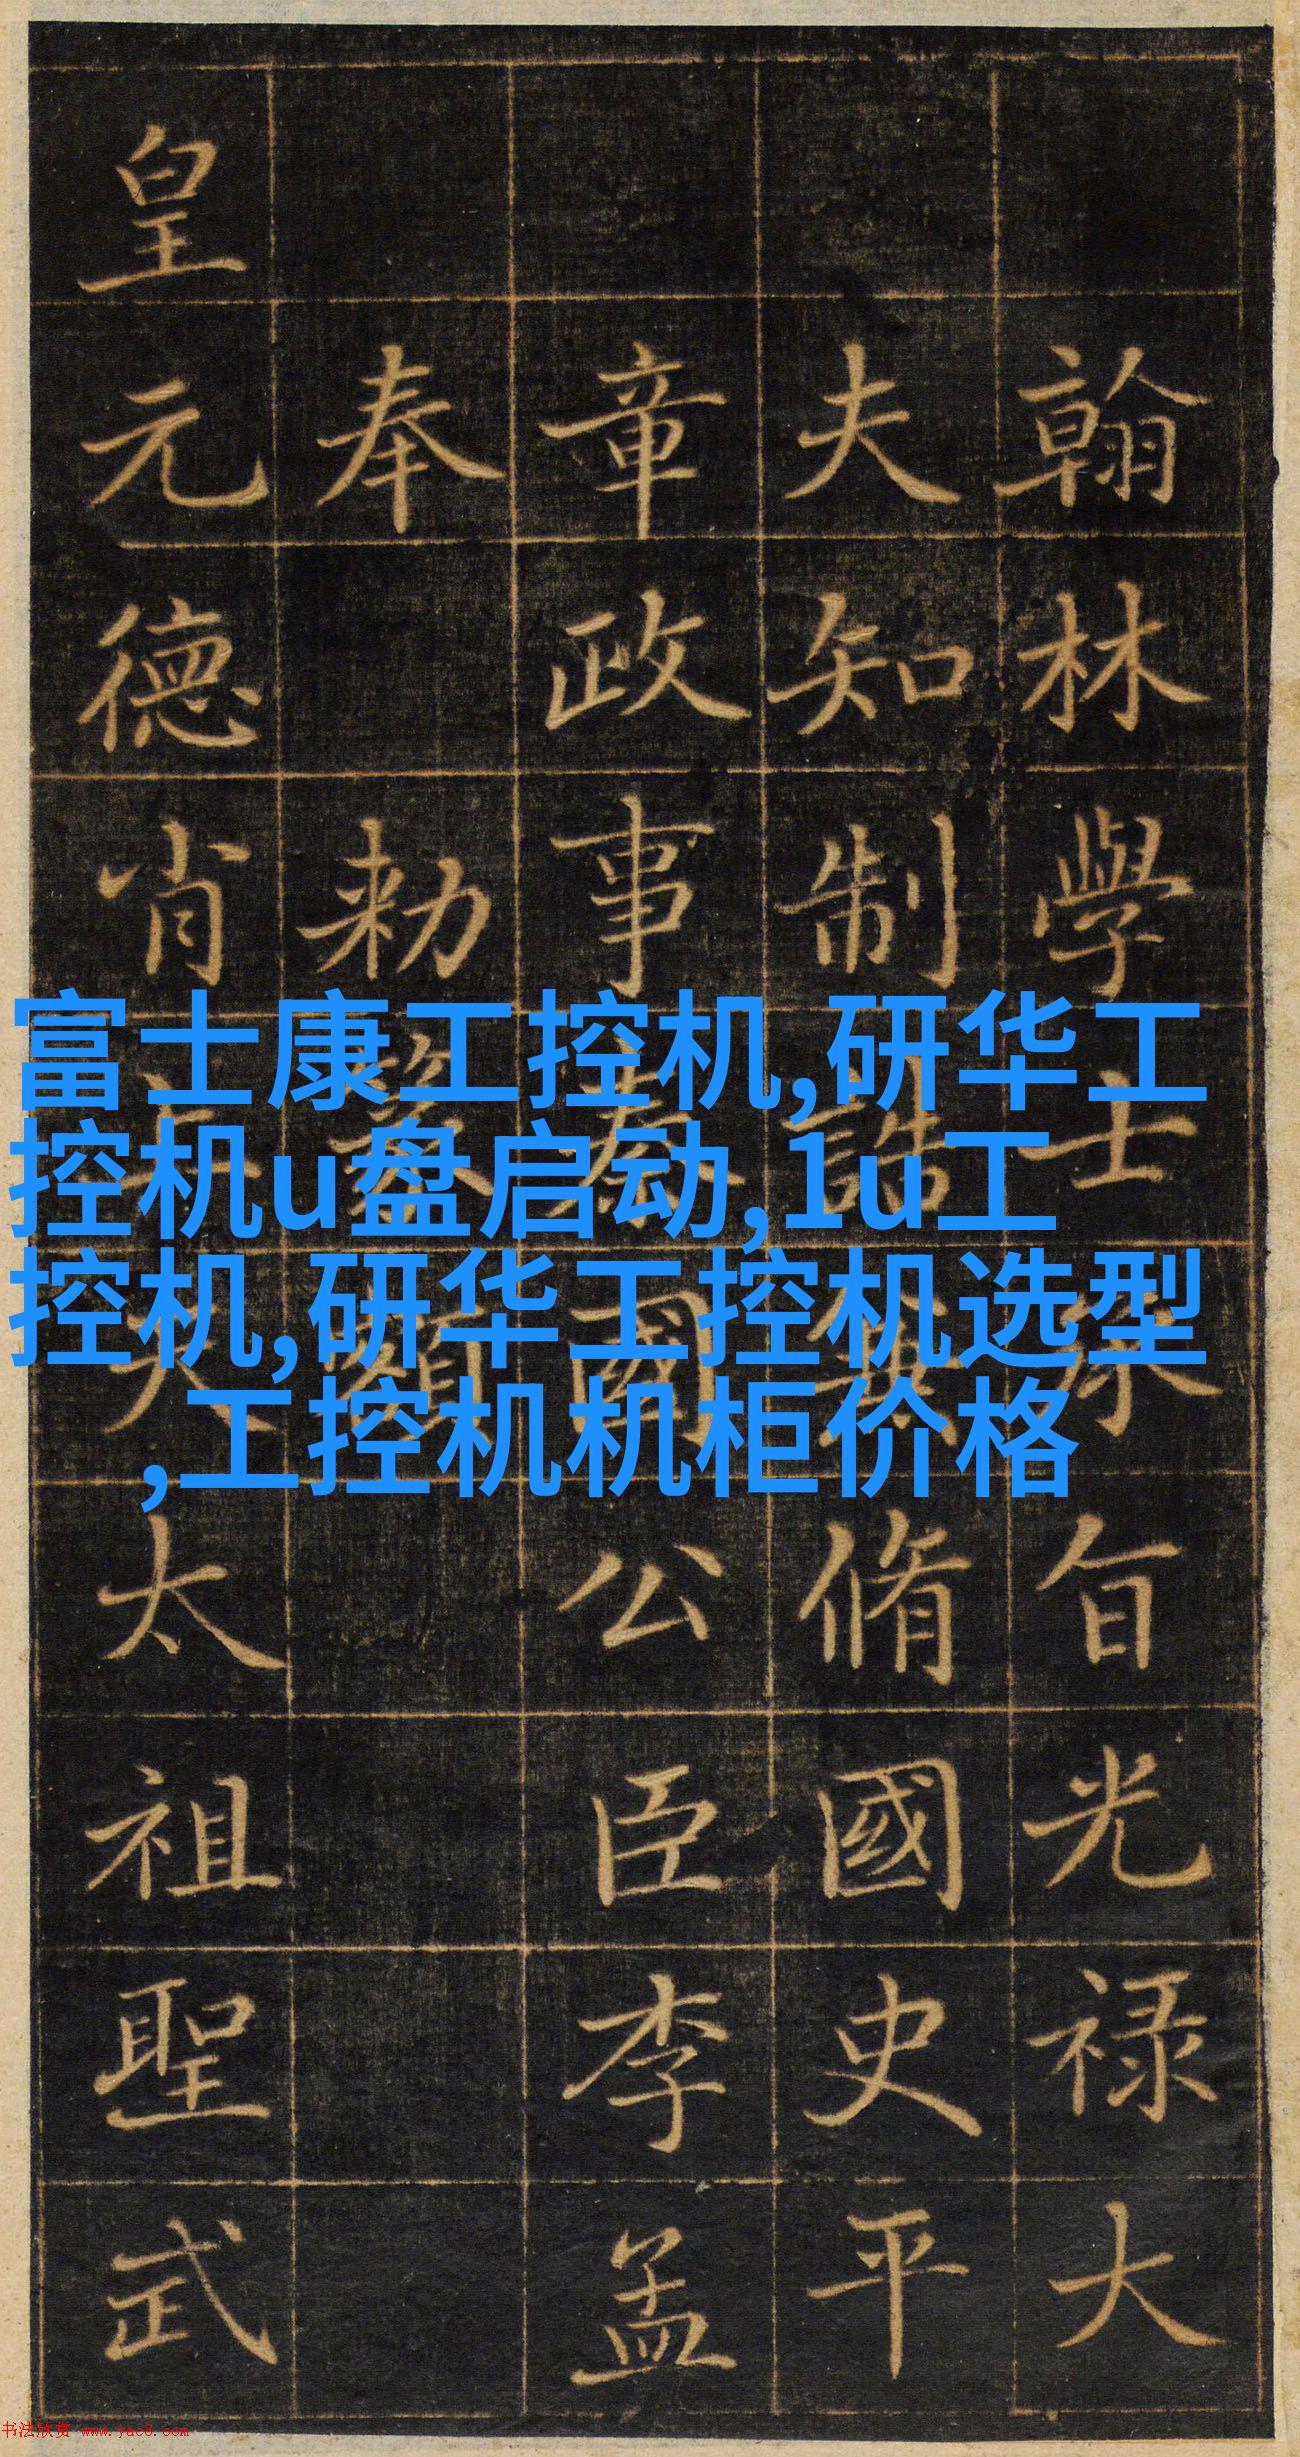 富士康工控机,研华工
控机u盘启动,1u工
控机,研华工控机选型
,工控机机柜价格
翰林學士承旨光禄大
夫知制誥兼脩國史平
章政事秦國公臣李孟
奉勅篆額
皇元德肖上天太祖聖武
书法欣赏 www.yac8.com